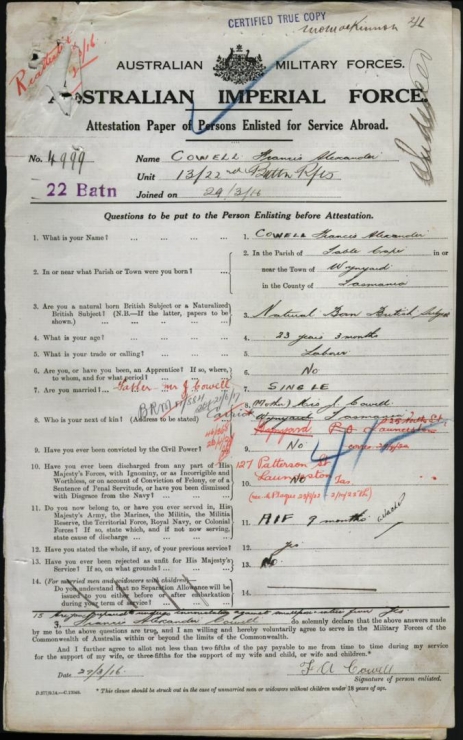 CERTIFIED TRUE COPY
AUSTRALIAN MILITARY FORCES.
AUSTRALIAN IMPERIAL FORCE.
Attestation Paper of Persons Enlisted for Service Abroad.
No. 4999 Name COWELL Francis Alexander
22 Batn Unit 13/22nd Battn Rfts
Joined on 29/3/16
Questions to be put to the Person Enlisting before Attestation.
1. What is your Name? ... 1. COWELL Francis Alexander
2. In or near what Parish or Town were you born? ... 2. In the Parish of Table Cape in or
near the Town of Wynyard
in the County of Tasmania
3. Are you a natural born British Subject or a Naturalized
British Subject? (N.B.—If the latter, papers to be
shown.) ... 3. Natural Born British Subject
4. What is your age? ... 4. 23 years 3 months
5. What is your trade or calling? ... 5. Labourer
6. Are you, or have you been, an Apprentice? If so, where,
to whom, and for what period? ... 6. No
7. Are you married? ... 7. SINGLE
Father Mr J Cowell
8. Who is your next of kin? (Address to be stated) 8. (Mother) Cowell
Wynyard Tasmania
Launceston
9. Have you ever been convicted by the Civil Power? 9. No
127 Patterson St
Launceston Tas.
10. Have you ever been discharged from any part of His
Majesty's Forces, with Ignominy, or as Incorrigible and
Worthless, or on account of Conviction of Felony, or of a
Sentence of Penal Servitude, or have you been dismissed
with Disgrace from the Navy? ... 10. No
11. Do you now belong to, or have you ever served in, His
Majesty's Army, the Marines, the Militia, the Militia
Reserve, the Territorial Force, Royal Navy, or Colonial
Forces? If so, state which, and if not now serving,
state cause of discharge ... 11. AIF 9 months
12. Have you stated the whole, if any, of your previous service? 12. Yes
13. Have you ever been rejected as unfit for His Majesty's
Service? If so, on what grounds? ... 13. No
14. (For married men and widowers with children)
Do you understand that no Separation Allowance will be
issued to you either before or after embarkation
during your term of service? ... 14.
15 Are you prepared to undergo inoculation against Yes
I, Francis Alexander Cowell do solemnly declare that the above answers made
by me to the above questions are true, and I am willing and hereby voluntarily agree to serve in the Military Forces of the
Commonwealth of Australia within or beyond the limits of the Commonwealth.
And I further agree to allot not less than two fifths of the pay payable to me from time to time during my service
for the support of my wife, or three-fifths for the support of my wife and child, or wife and children.*
Date 29/3/16 F A Cowell
Signature of person enlisted.
* This clause should be struck out in the case of unmarried men or widowers without children under 18 years of age.